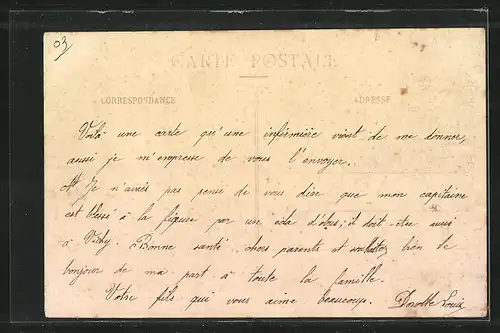 03
CARTE POSTALE
CORRESPONDANCE
ADRESSE
Voilà une carte qu'une infirmière vient de me donner,
aussi je m'empresse de vous l'envoyer.
Je n'avais pas pensé de vous dire que mon capitaine
est blessé à la figure par un écla d'obus; il doit être aussi
à Vichy. Bonne santé, chers parents et souhaitez bien le
bonjour de ma part à toute la famille.
Votre fils qui vous aime beaucoup. Louis